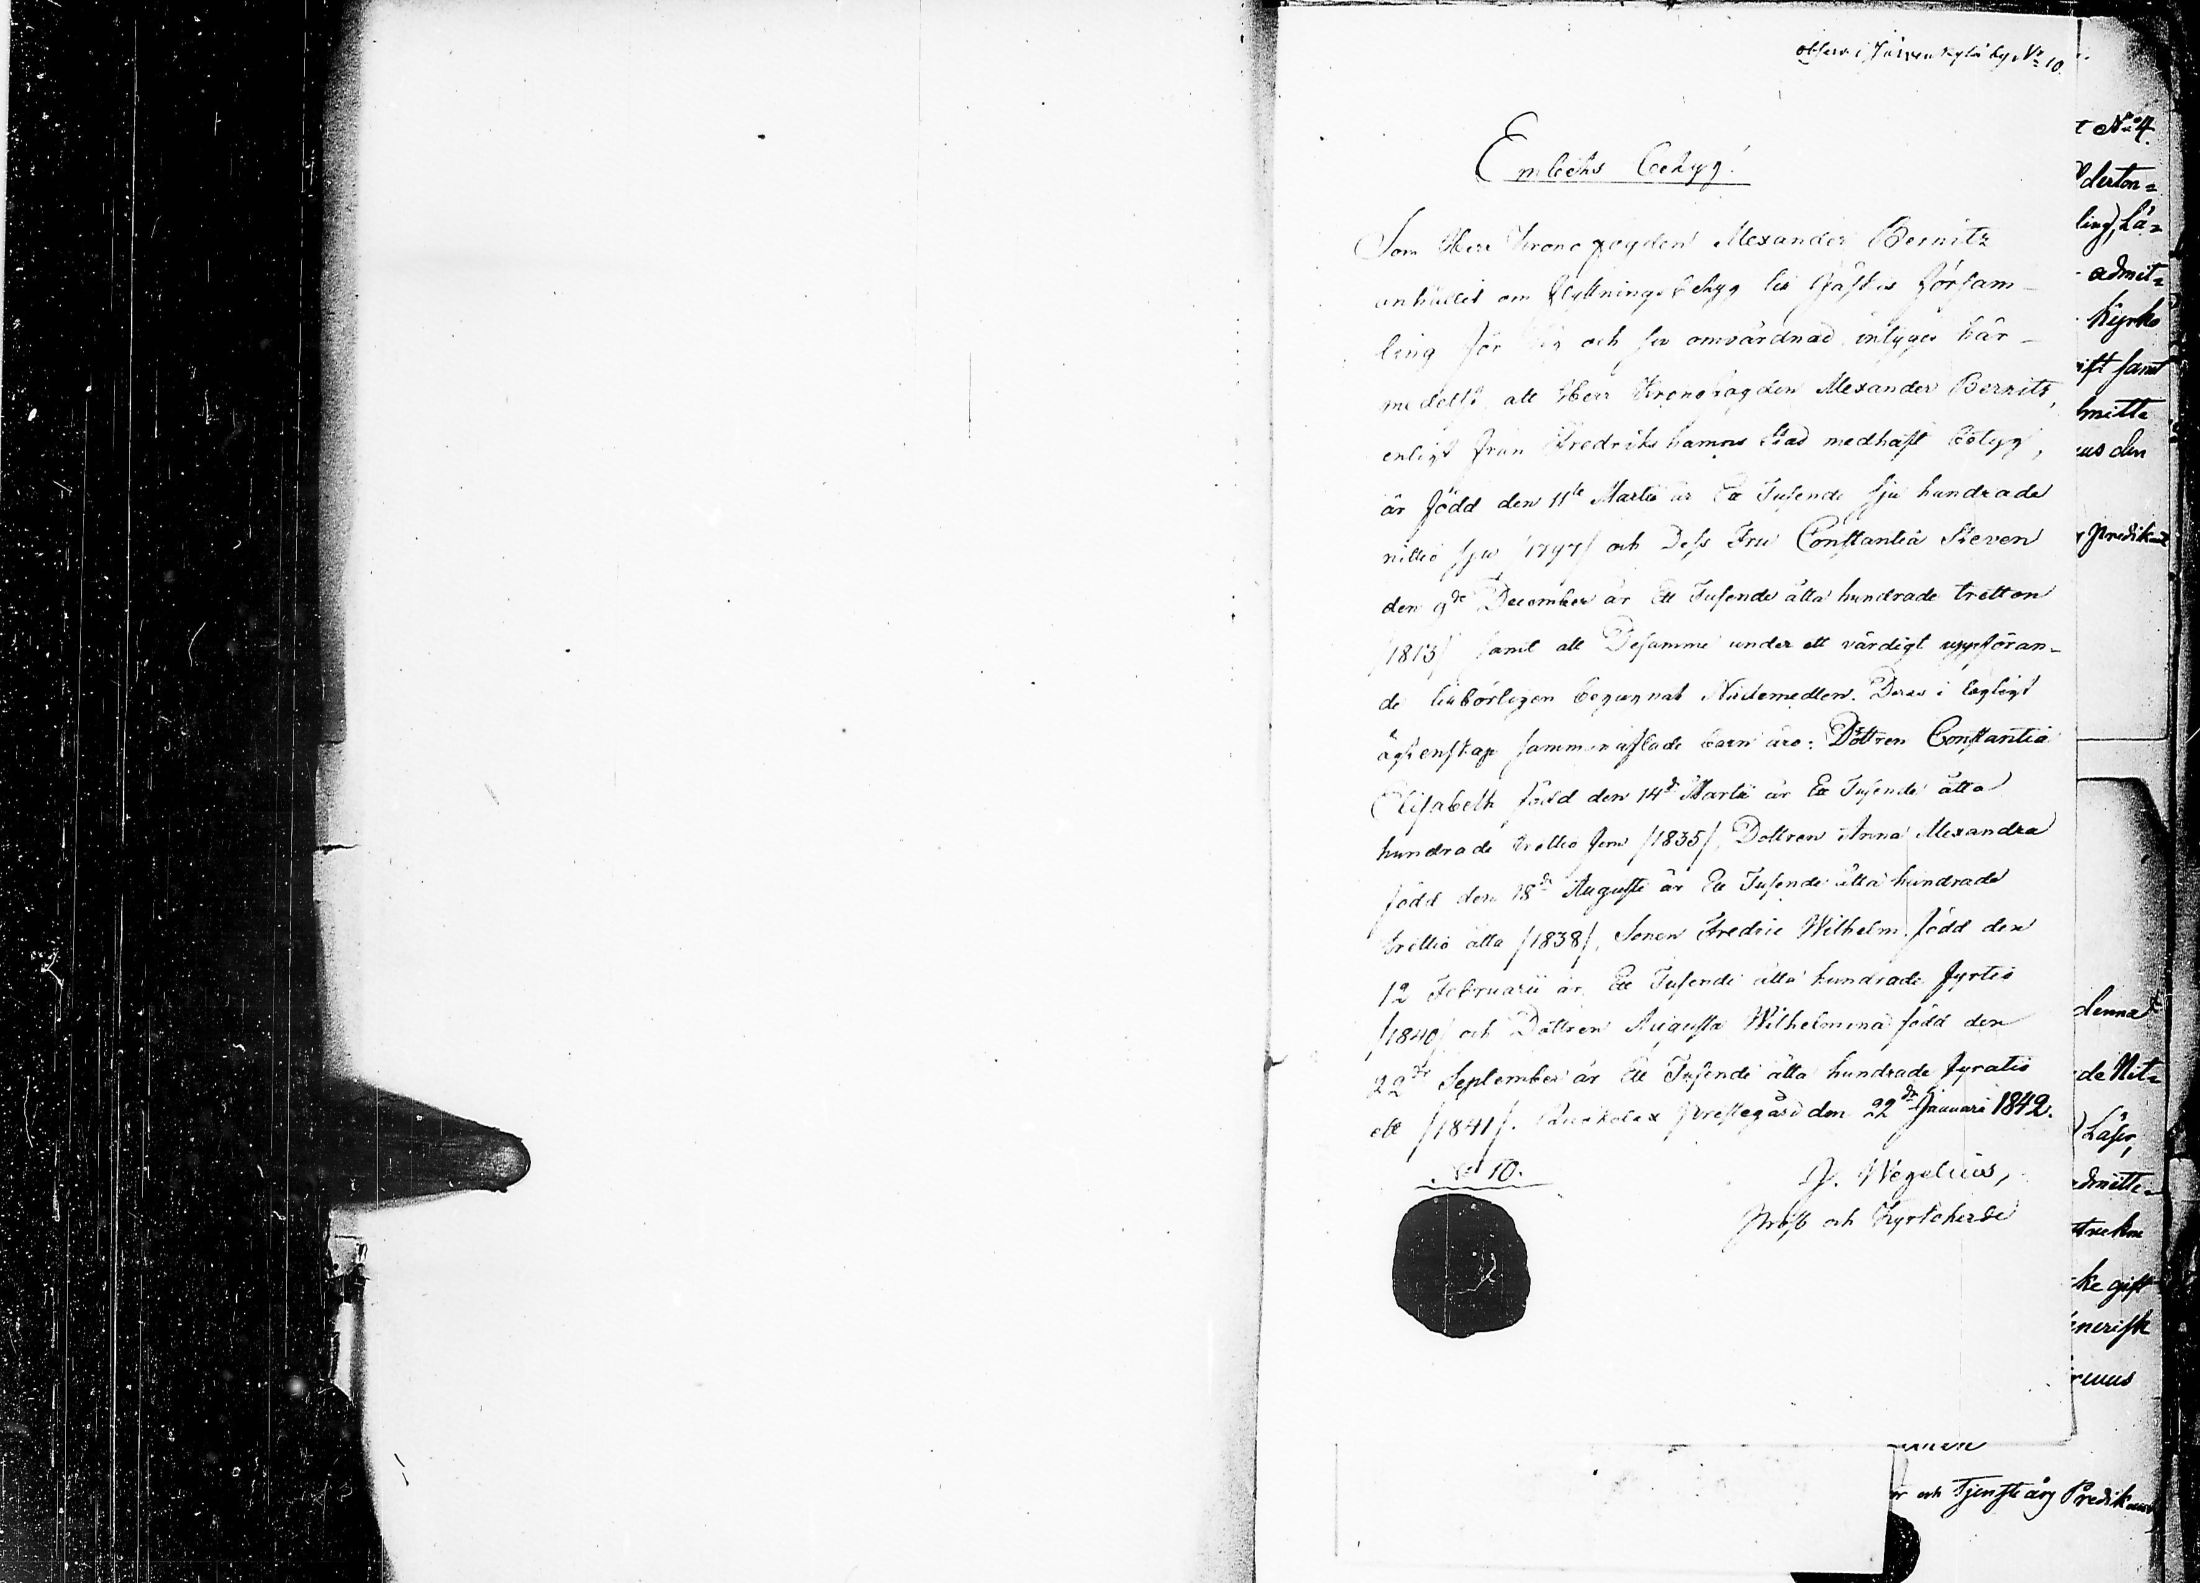 i Järvenkylä by No 10.
Embets betyg!
Som Herr Kronofogden Alexander Bernitz
anhållit om flyttningsbetyg till församling
för sig och omvårdnad, intygas här-
medelst, att Herr Kronofogden Alexander Bernitz,
enligt från Fredrikshamns Stad medhaft betyg,
är född den 11te Martii år Ett Tusende sju hundrade
nittio sju /1797/ och Dess Fru Constantia Steven
den 9de December år Ett Tusende åtta hundrade tretton
/1813/ samt att Desamme under ett värdigt uppföran-
de tillbörligen begagnat Nådemedlen. Deras i lagligt
äktenskap sammanaflade barn äro: Döttren Constantia
Elisabeth född den 14de Martii år Ett Tusende åtta
hundrade trettio fem /1835/, Dottren Anna Alexandra
född den 18de Augusti år Ett Tusende åtta hundrade
trettio åtta /1838/, Sonen Fredric Wilhelm född den
12 Februarii år Ett Tusende åtta hundrade fyrtio
/1840/ och Döttren Augusta Wilhelmina född den
22de September år Ett Tusende åtta hundrade fyratio
ett /1841/. Prestegård den 22de Januari 1842.
No 10.
J. Wegelius,
Prost och Kyrkoherde
t No 4.
derton=
ling, Lä=
admit=
kyrko
rift samt
mitte
us den
Predikant
denna
de Nit=
Läser,
admitte=
ke gift
och Tjenstårg Predikant